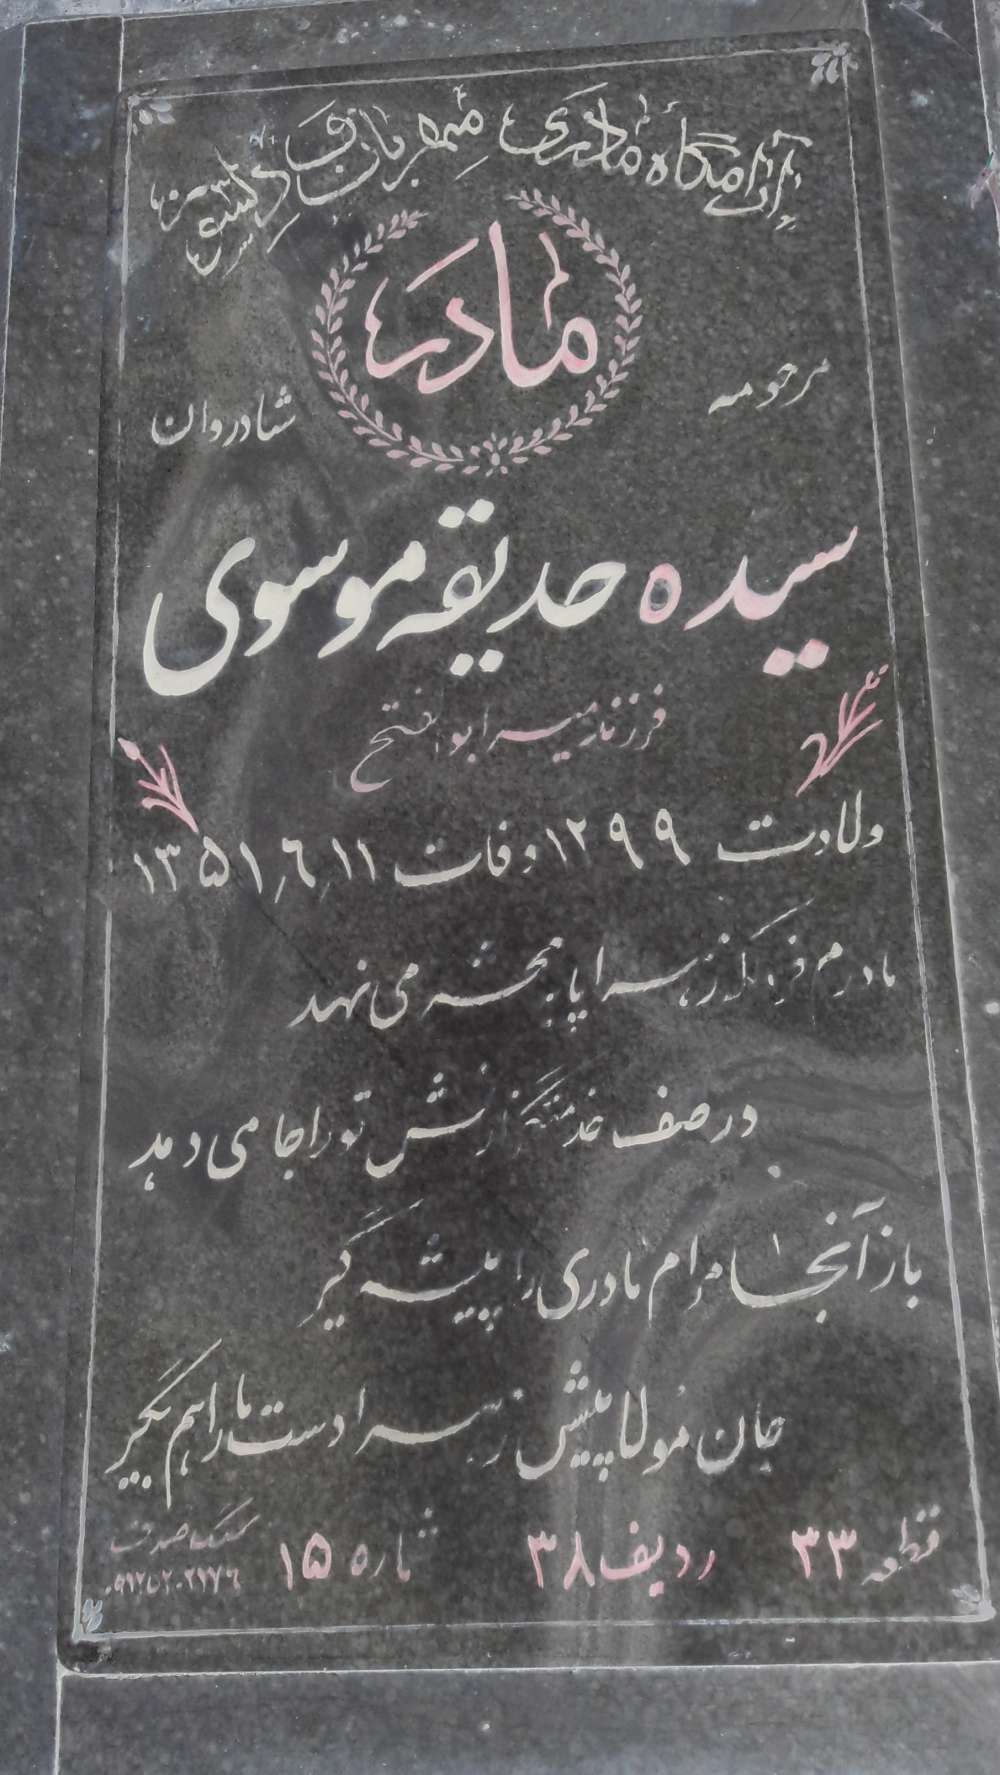 آرامگاه مادری مهربان و دلسوز
مادر
مرحومه شادروان
سیده حدیقه موسوی
فرزند میر ابوالفتح
ولادت ۱۲۹۹ وفات ۱۳۵۱٫۶٫۱۱
مادرم فردا که زهرا پا به محشر می نهد
در صف خدمتگزارانش تو را جا می دهد
باز آنجا مرام مادری را پیشه گیر
جان مولا پیش زهرا دست ما را هم بگیر
قطعه ۳۳ ردیف ۳۸ شماره ۱۵